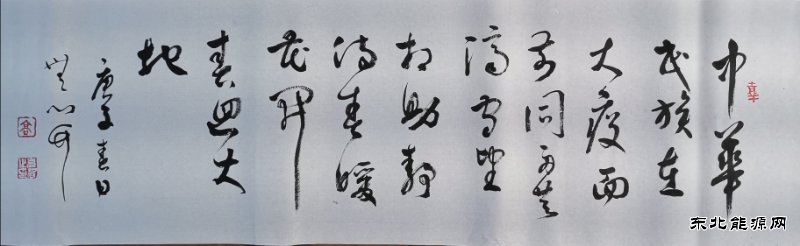 中華
民族在
大疫面
前同舟共
濟守望
相助靜
待春暖
花開
春回大
地
庚子春日
东北能源网